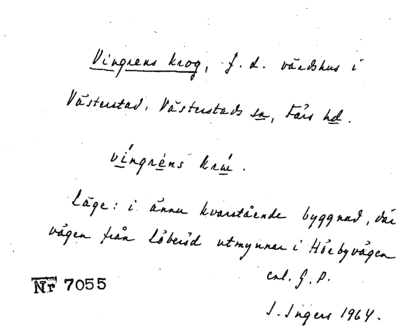 Vingrens krog, f. d. värdshus i
Västerstad, Västerstads sn, Färs hd.
víngrèns
Läge: i ännu kvarstående byggnad, där
vägen från Löberöd utmynnar i Hörbyvägen
enl. G. P.
I. Ingers 1964.
Nr 7055